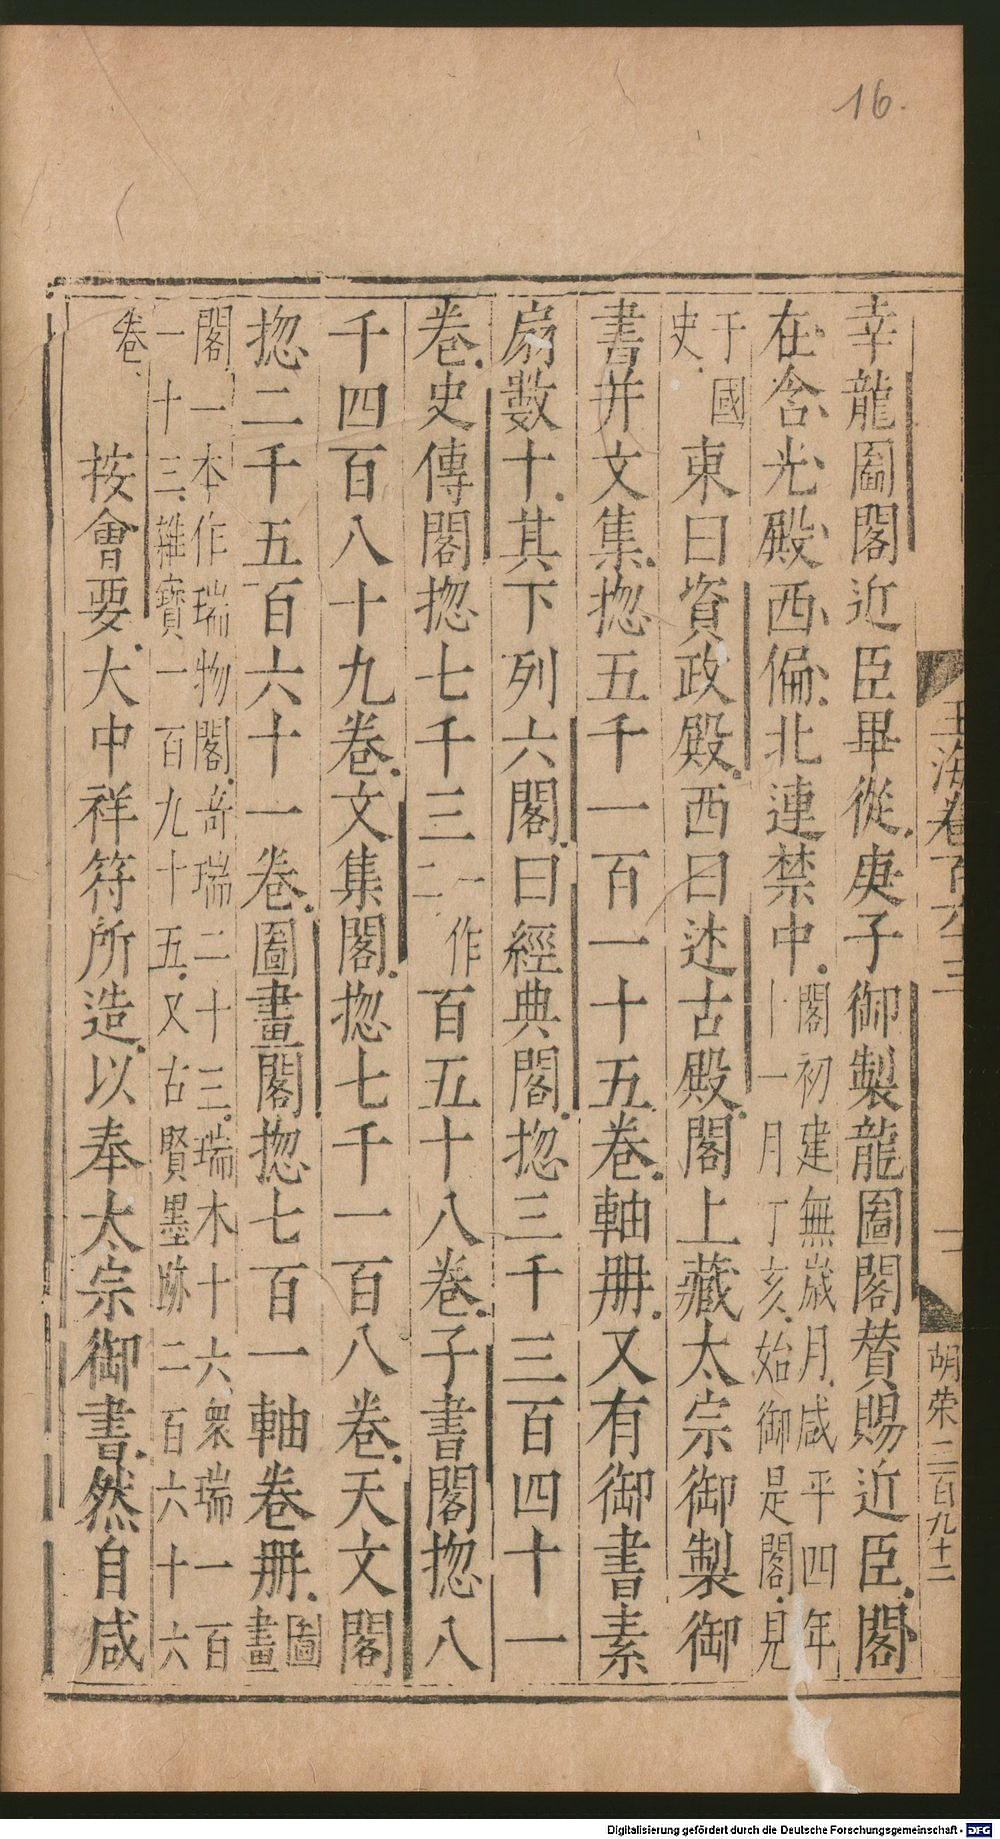 16.
玉海卷百六十三
胡荣 二百九十二
幸龍圖閣近臣畢從庚子御製龍圖閣賛賜近臣閣
在含光殿西偏北連禁中閣初建無歲月咸平四年
十一月丁亥始御是閣見
于國
史
東曰資政殿西曰述古殿閣上藏太宗御製御
書并文集揔五千一百一十五卷軸册又有御書素
扇數十其下列六閣曰經典閣揔三千三百四十一
卷史傳閣揔七千三一作
二
百五十八卷子書閣揔八
千四百八十九卷文集閣揔七千一百八卷天文閣
揔二千五百六十一卷圖畫閣揔七百一軸卷册圖
畫
閣一本作瑞物閣奇瑞二十三瑞木十六衆瑞一百
一十三雜寶一百九十五又古賢墨跡二百六十六
卷
按會要大中祥符所造以奉太宗御書然自咸
Digitalisierung gefördert durch die Deutsche Forschungsgemeinschaft - DFG